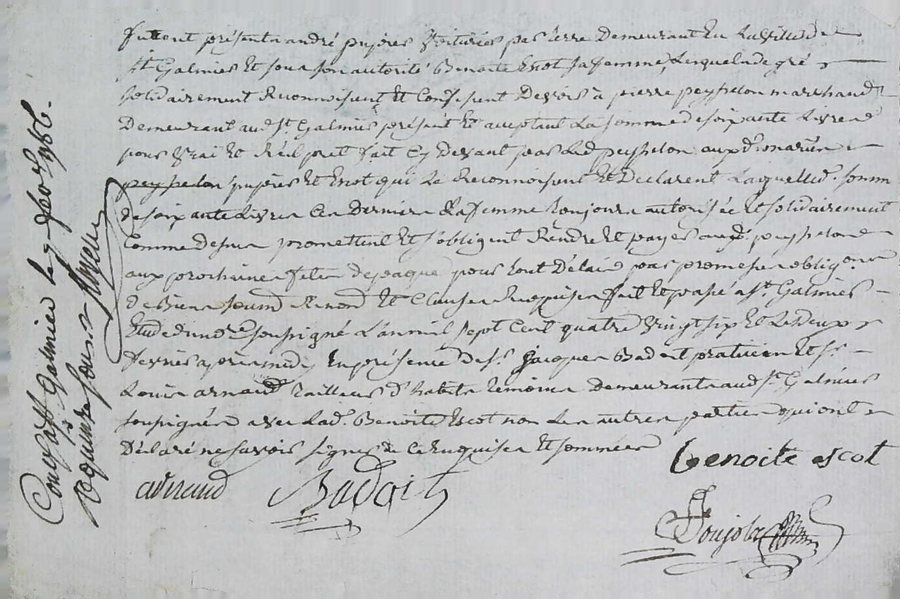 furent présents andré pujeres Voiturier par terre Demeurant En la ville de
St Galmier Et sous son autorité Benoite Escot sa femme, Lesquels de gré
solidairement Reconnoissent Et Confessent Devoir à pierre peysselon marchand
Demeurant aud. St. Galmier présent Et aceptant La somme de soixante Livres
pour Vrai Et Réel prêt fait Cy Devant par Led. peysselon auxd.
pujeres Et Escot qui Le Reconnoissent Et Déclarent Laquelle d. somme
de soixante Livres Ces Derniers La femme toujours autorisée Et solidairement
Comme dessus promettent Et s'obligent Rendre Et payer aud. peysselon
aux prochaines fêtes de paque pour tout Délai par promesse oblig.on
de Biens soumd. Renond. Et Clauses Requises fait Et passé a St. Galmier
Etude du no.re soussigné L'an mil sept Cent quatre Vingt six Et Le deux
fevrier après midy En présence de sr. Jacques Badoit praticien Et sr.
Louis arnaud Tailleur d'habits temoins demeurants aud. St. Galmier
soussignés avec Lad. Benoite Escot non Les autres parties qui ont
Déclaré ne savoir signer de Ce Enquises Et sommées
Benoite escot
arnaud Badoit
Con.lé à St Galmier le 7 fev.er 1786.
Reçu